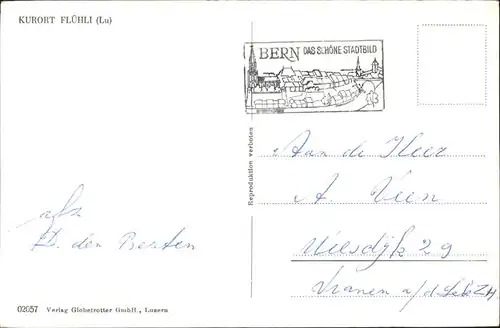 KURORT FLÜHLI (Lu)
BERN DAS SCHÖNE STADTBILD
Reproduktion verboten
Aan de Heer
A. Veen
29
a/d Lek ZH
afz
den Besten
02057 Verlag Globetrotter GmbH., Luzern